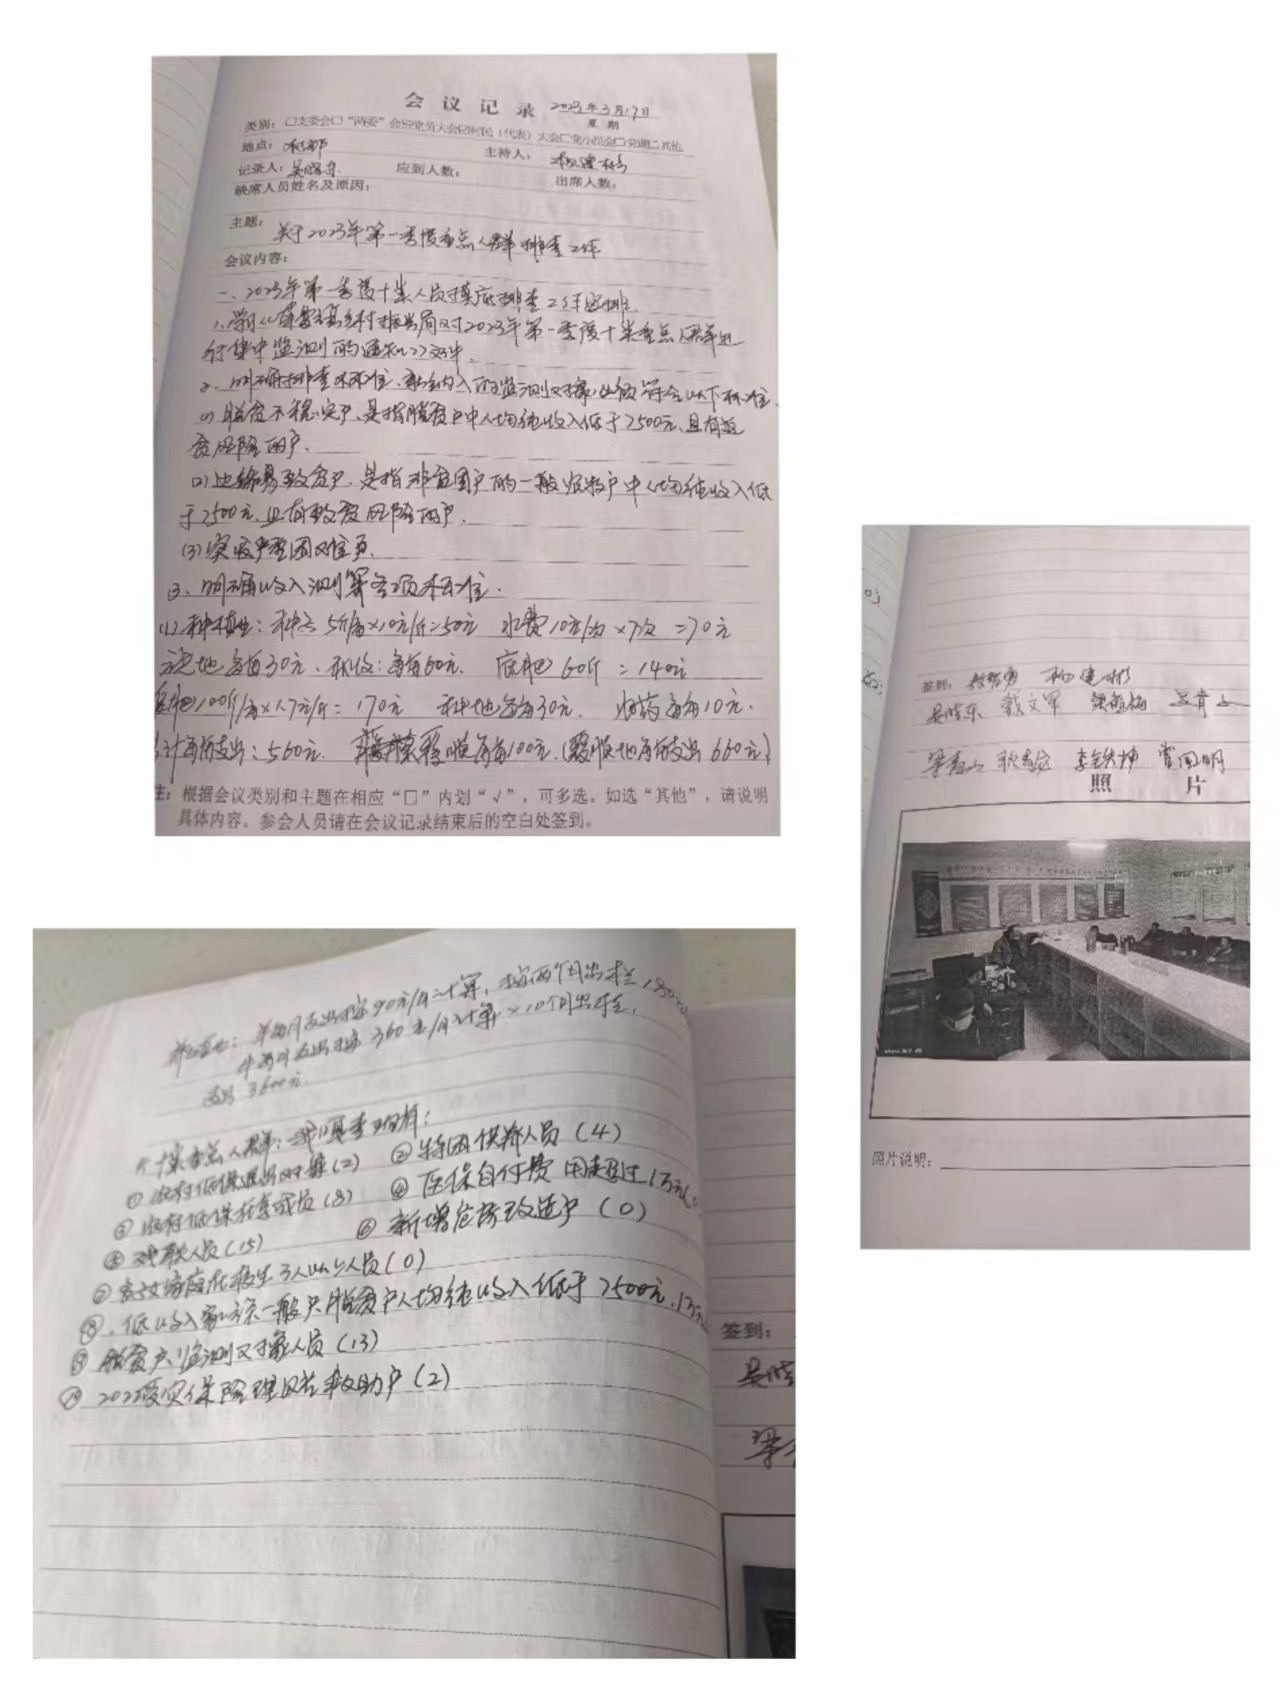 会 议 记 录 2023年3月17日
星 期
类别：□支委会□“两委”会☑党员大会☑村民（代表）大会□党小组会□党课□其他
地点：村部 主持人：
记录人：吴晓东 应到人数： 出席人数：
缺席人员姓名及原因：
主题：关于2023年第一季度重点人群排查工作
会议内容：
一、2023年第一季度十类人员摸底排查工作安排.
1、学习《 县乡村振兴局对2023年第一季度十类重点人群进
行集中监测的通知》文件.
2、明确排查标准、新纳入的监测对象必须符合以下标准.
(1)脱贫不稳定户、是指脱贫户中人均纯收入低于7500元、且有返
贫风险的户.
(2)边缘易致贫户、是指非贫困户的一般农牧户中人均纯收入低
于7500元、且有致贫风险的户.
(3)突发严重困难户.
3、明确收入测算各项标准.
(1)种植业：种子5斤/亩×10元/斤=50元 水费10元/次×7次=70元
地每亩30元、秋收：每亩60元. 底肥60斤=140元
肥100斤/亩×1.7元/斤=170元 种地每亩30元. 农药每亩10元.
计每亩支出：560元. 覆膜每亩100元.(覆膜地每亩支出660元)
注：根据会议类别和主题在相应“□”内划“√”，可多选。如选“其他”，请说明
具体内容。参会人员请在会议记录结束后的空白处签到。
签到： 杨建彬
吴晓东 戴文军 梁 梅
梁春山 李铁坤 贾国明
照 片
照片说明：
养殖业：羊每月支出按90元/月计算，按两个月出栏180元
牛每月支出按360元/月计算×10个月出栏.
支出3600元.
十类重点人群：
①农村低保退出对象(2) ②特困供养人员(4)
③农村低保在享成员(8) ④医保自付费用超过1万元(
⑤残联人员(15) ⑥新增危房改造户(0)
⑦ 家庭在校生3人以上人员(0)
⑧、低收入家庭一般户脱贫户人均纯收入低于7500元、
⑨脱贫户监测对象人员(13)
⑩2022受灾保险理赔 救助户(2)
签到：
吴晓
梁